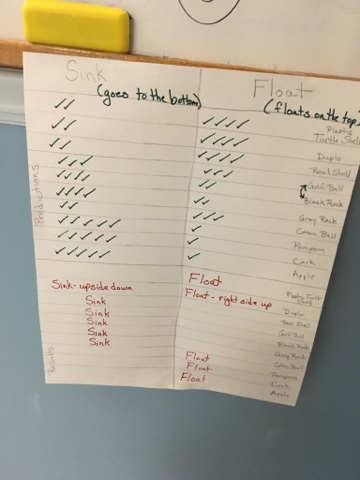 Sink
(goes to the bottom)
Float
(floats on the top)
Predictions
Plastic
Turtle Shell
Duplo
Real Shell
Golf Ball
Black Rock
Gray Rock
Cotton Ball
Pompom
Cork
Apple
Results
Sink - upside down
Sink
Sink
Sink
Sink
Sink
Float
Float - right side up
Float
Float
Float
Plastic Turtle
Shell
Duplo
Real Shell
Golf Ball
Black Rock
Gray Rock
Cotton Ball
Pompom
Cork
Apple